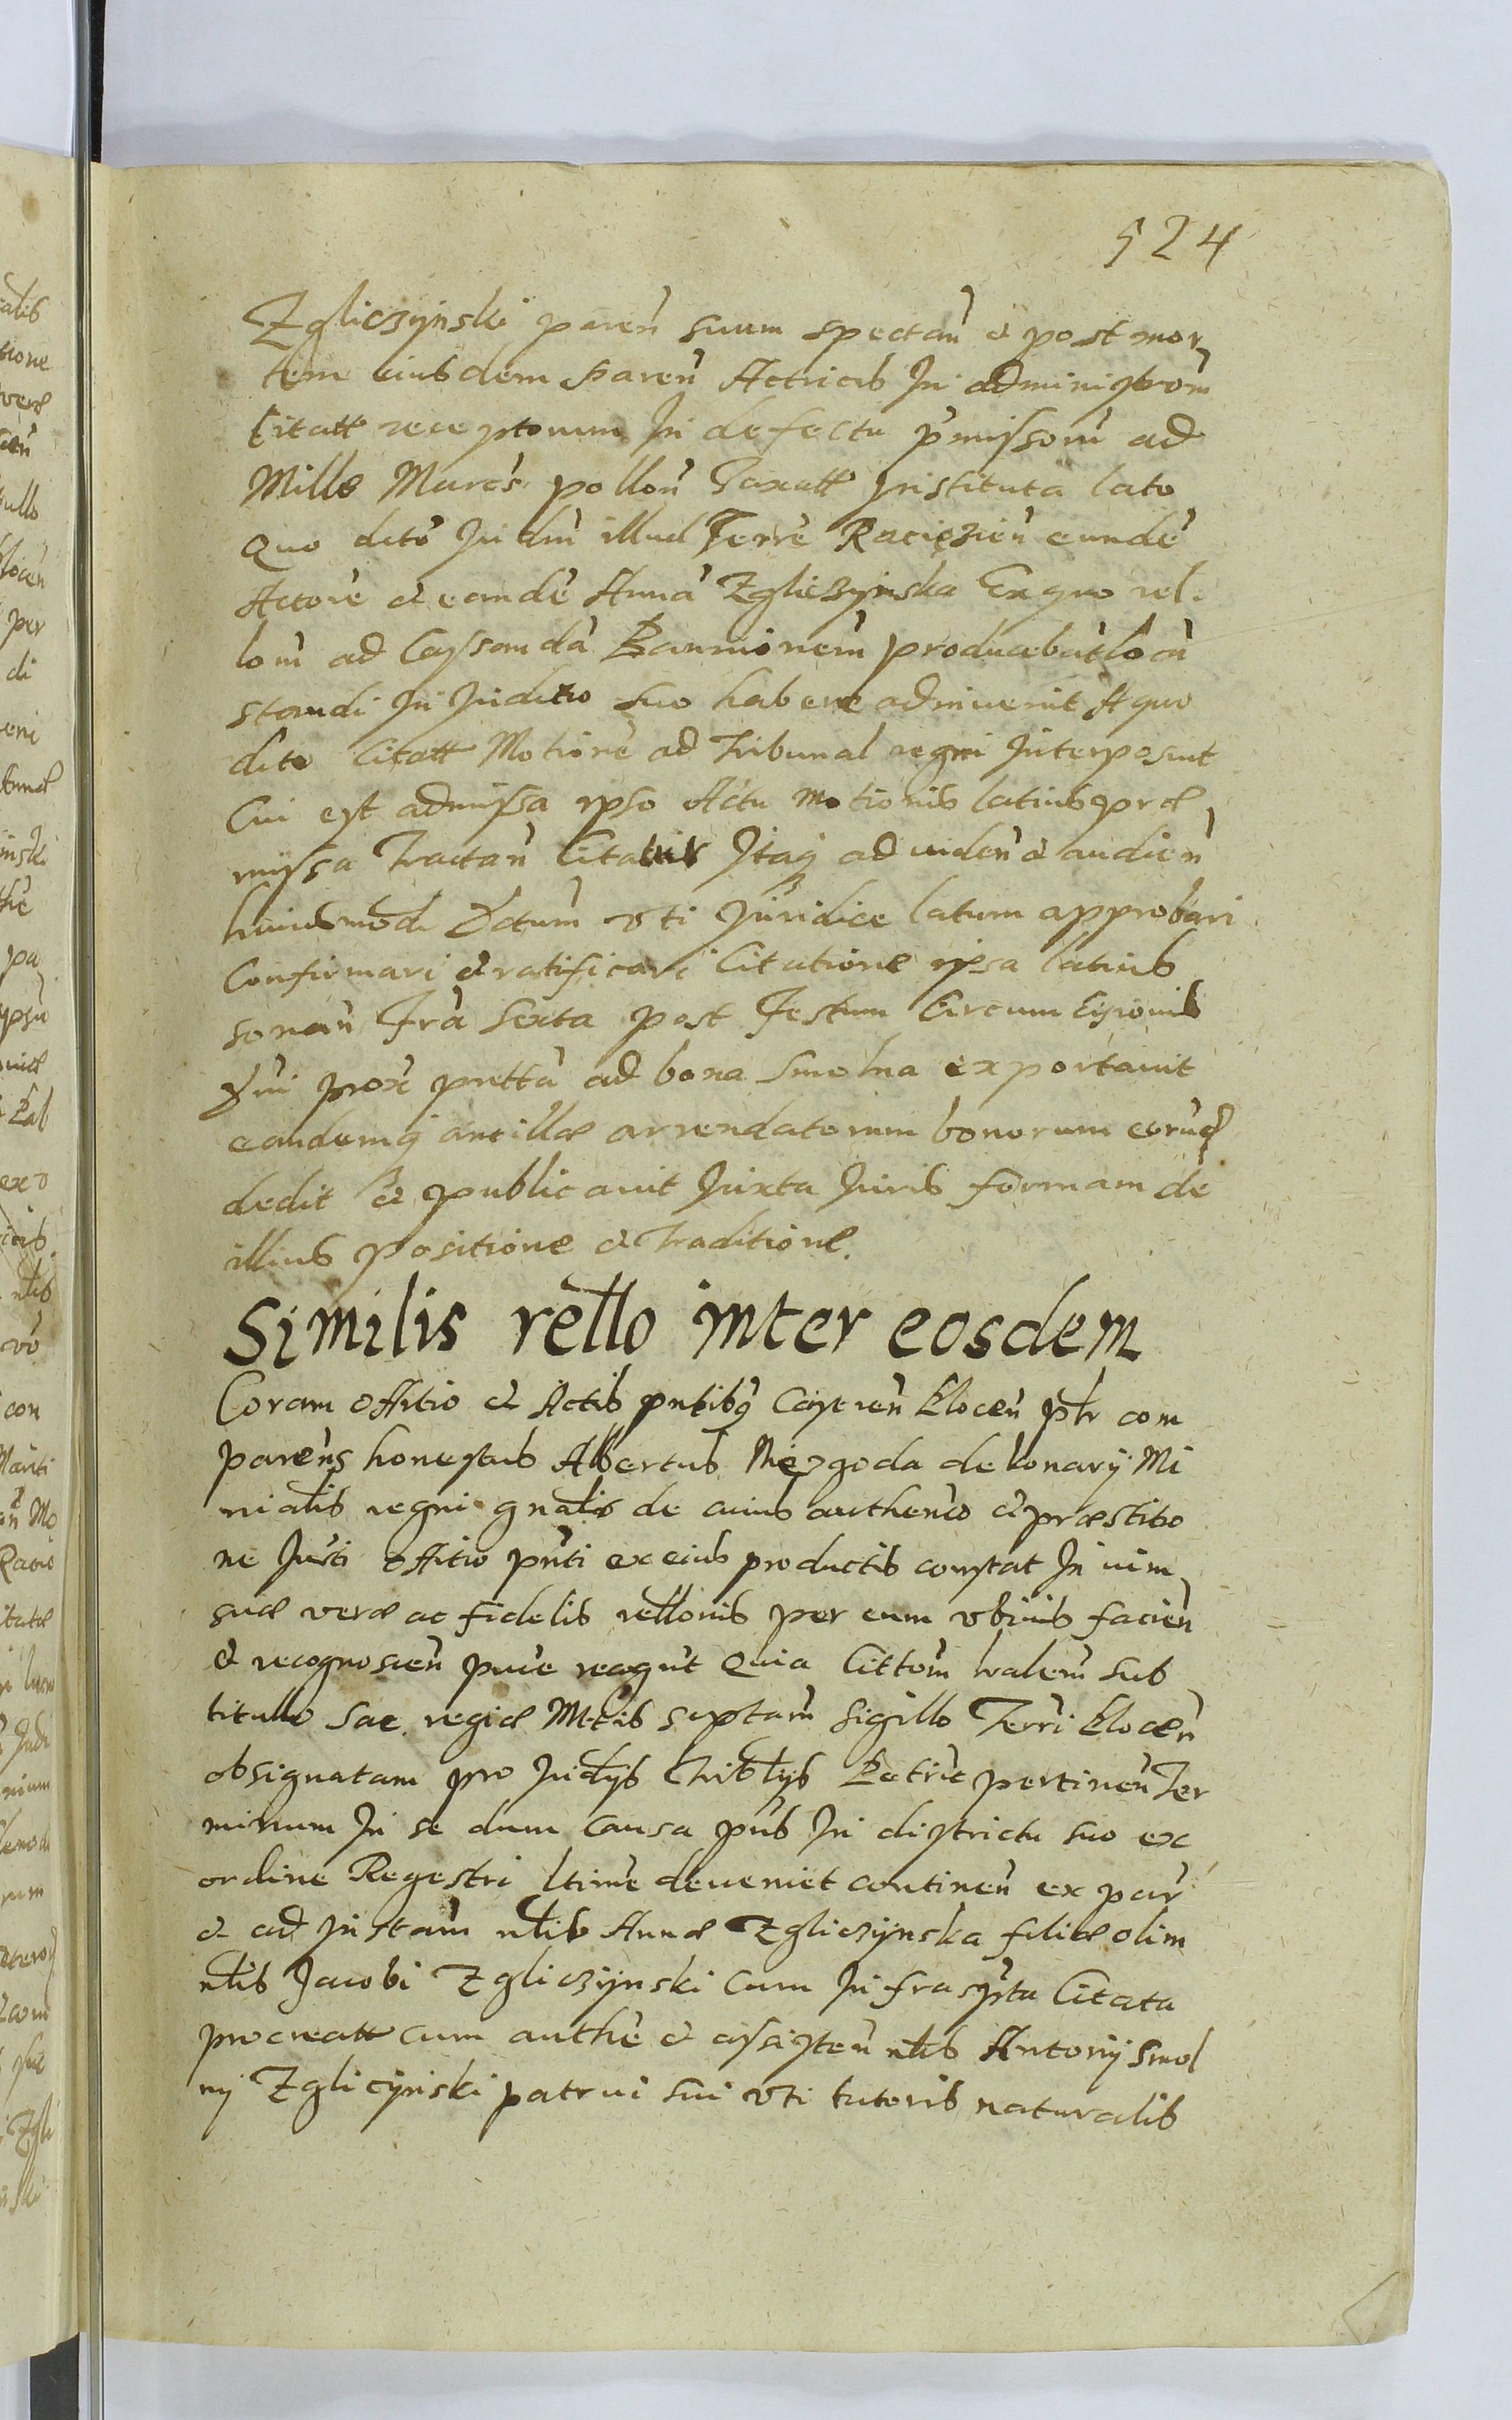 524
Zgliczÿnski paren suum spectan & post mor
tem eiusdem Paren Actricis In administrom
Citatt receptorum In defectu pmissom ad
Mille Marcs pollon Taxatt Instituta lato
Quo dcto Judm illud Terre Raciązien eunde
Actore & eande Anna Zgliczÿnska Ex quo rel
lom ad Cassanda Bannionem producebat locu
standi In Juditio suo habere adinuenit A quo
dcto Citatt Motione ad Tribunal regni Interposuit
Cui est admissa ipso Actu Motionis latius præ
missa Tractan Citatur Itaq ad viden & audien
huiusmodi Dctum vti Juridice latum approbari
Confirmari & ratificari Citatione ipsa latius
sonan Fra Sexta post Festum Circumcisionis
Dni prox pretta ad bona Smolna exportauit
eandemq ancillæ arrendatorum bonorum eorud
dedit & publicauit Juxta Juris formam de
illius positione & Traditione.
Similis rello inter eosdem
Coram Offitio & Actis pntibq Castren Plocen psr com
parens honestus Albertus Niezgoda de konarÿ Mi
nialis regni gnalis de cuius authenco & præstito
ne Jurti Offitio pnti ex eius productis constat In vim
suæ veræ ac fidelis rellonis per eum vbiuis facien
& recognoscen puice recogut Quia Cittom tralem sub
titullo Sac. regiæ Mttis scptam Sigillo Terri Plocen
obsignatam pro Judÿs Tribtÿs Petric pertinen Ter
minum In se dum causa pns In districtu suo ex
ordine Regestri ltime deueniet continen ex par
& ad Instam nlis Annæ Zgliczÿnska filiæ olim
nlis Jacobi Zgliczÿnski cum Infrascpta Citata
procreatt cum authe & assisten nlis Antonÿ Smol
nÿ Zglicÿnski patrui sui vti tutoris naturalis